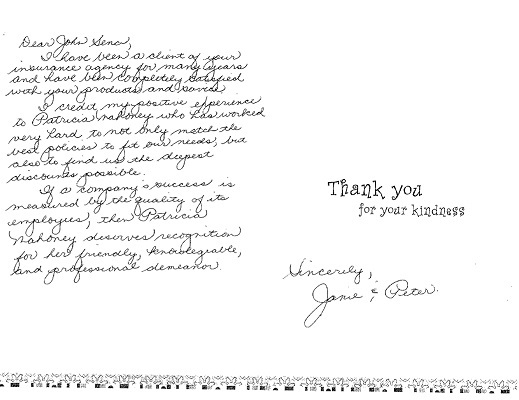 Dear John Sena,
I have been a client of your
insurance agency for many years
and have been completely satisfied
with your products and
I credit my positive experience
to Patricia Mahoney who has worked
very hard to not only match the
best policies to fit our needs, but
also to find us the deepest
discounts possible.
If a company's success is
measured by the quality of its
employees, then Patricia
Mahoney deserves recognition
for her friendly, knowlegiable,
and professional demeanor.
Thank you
for your kindness
Sincerely,
Janie & Peter.